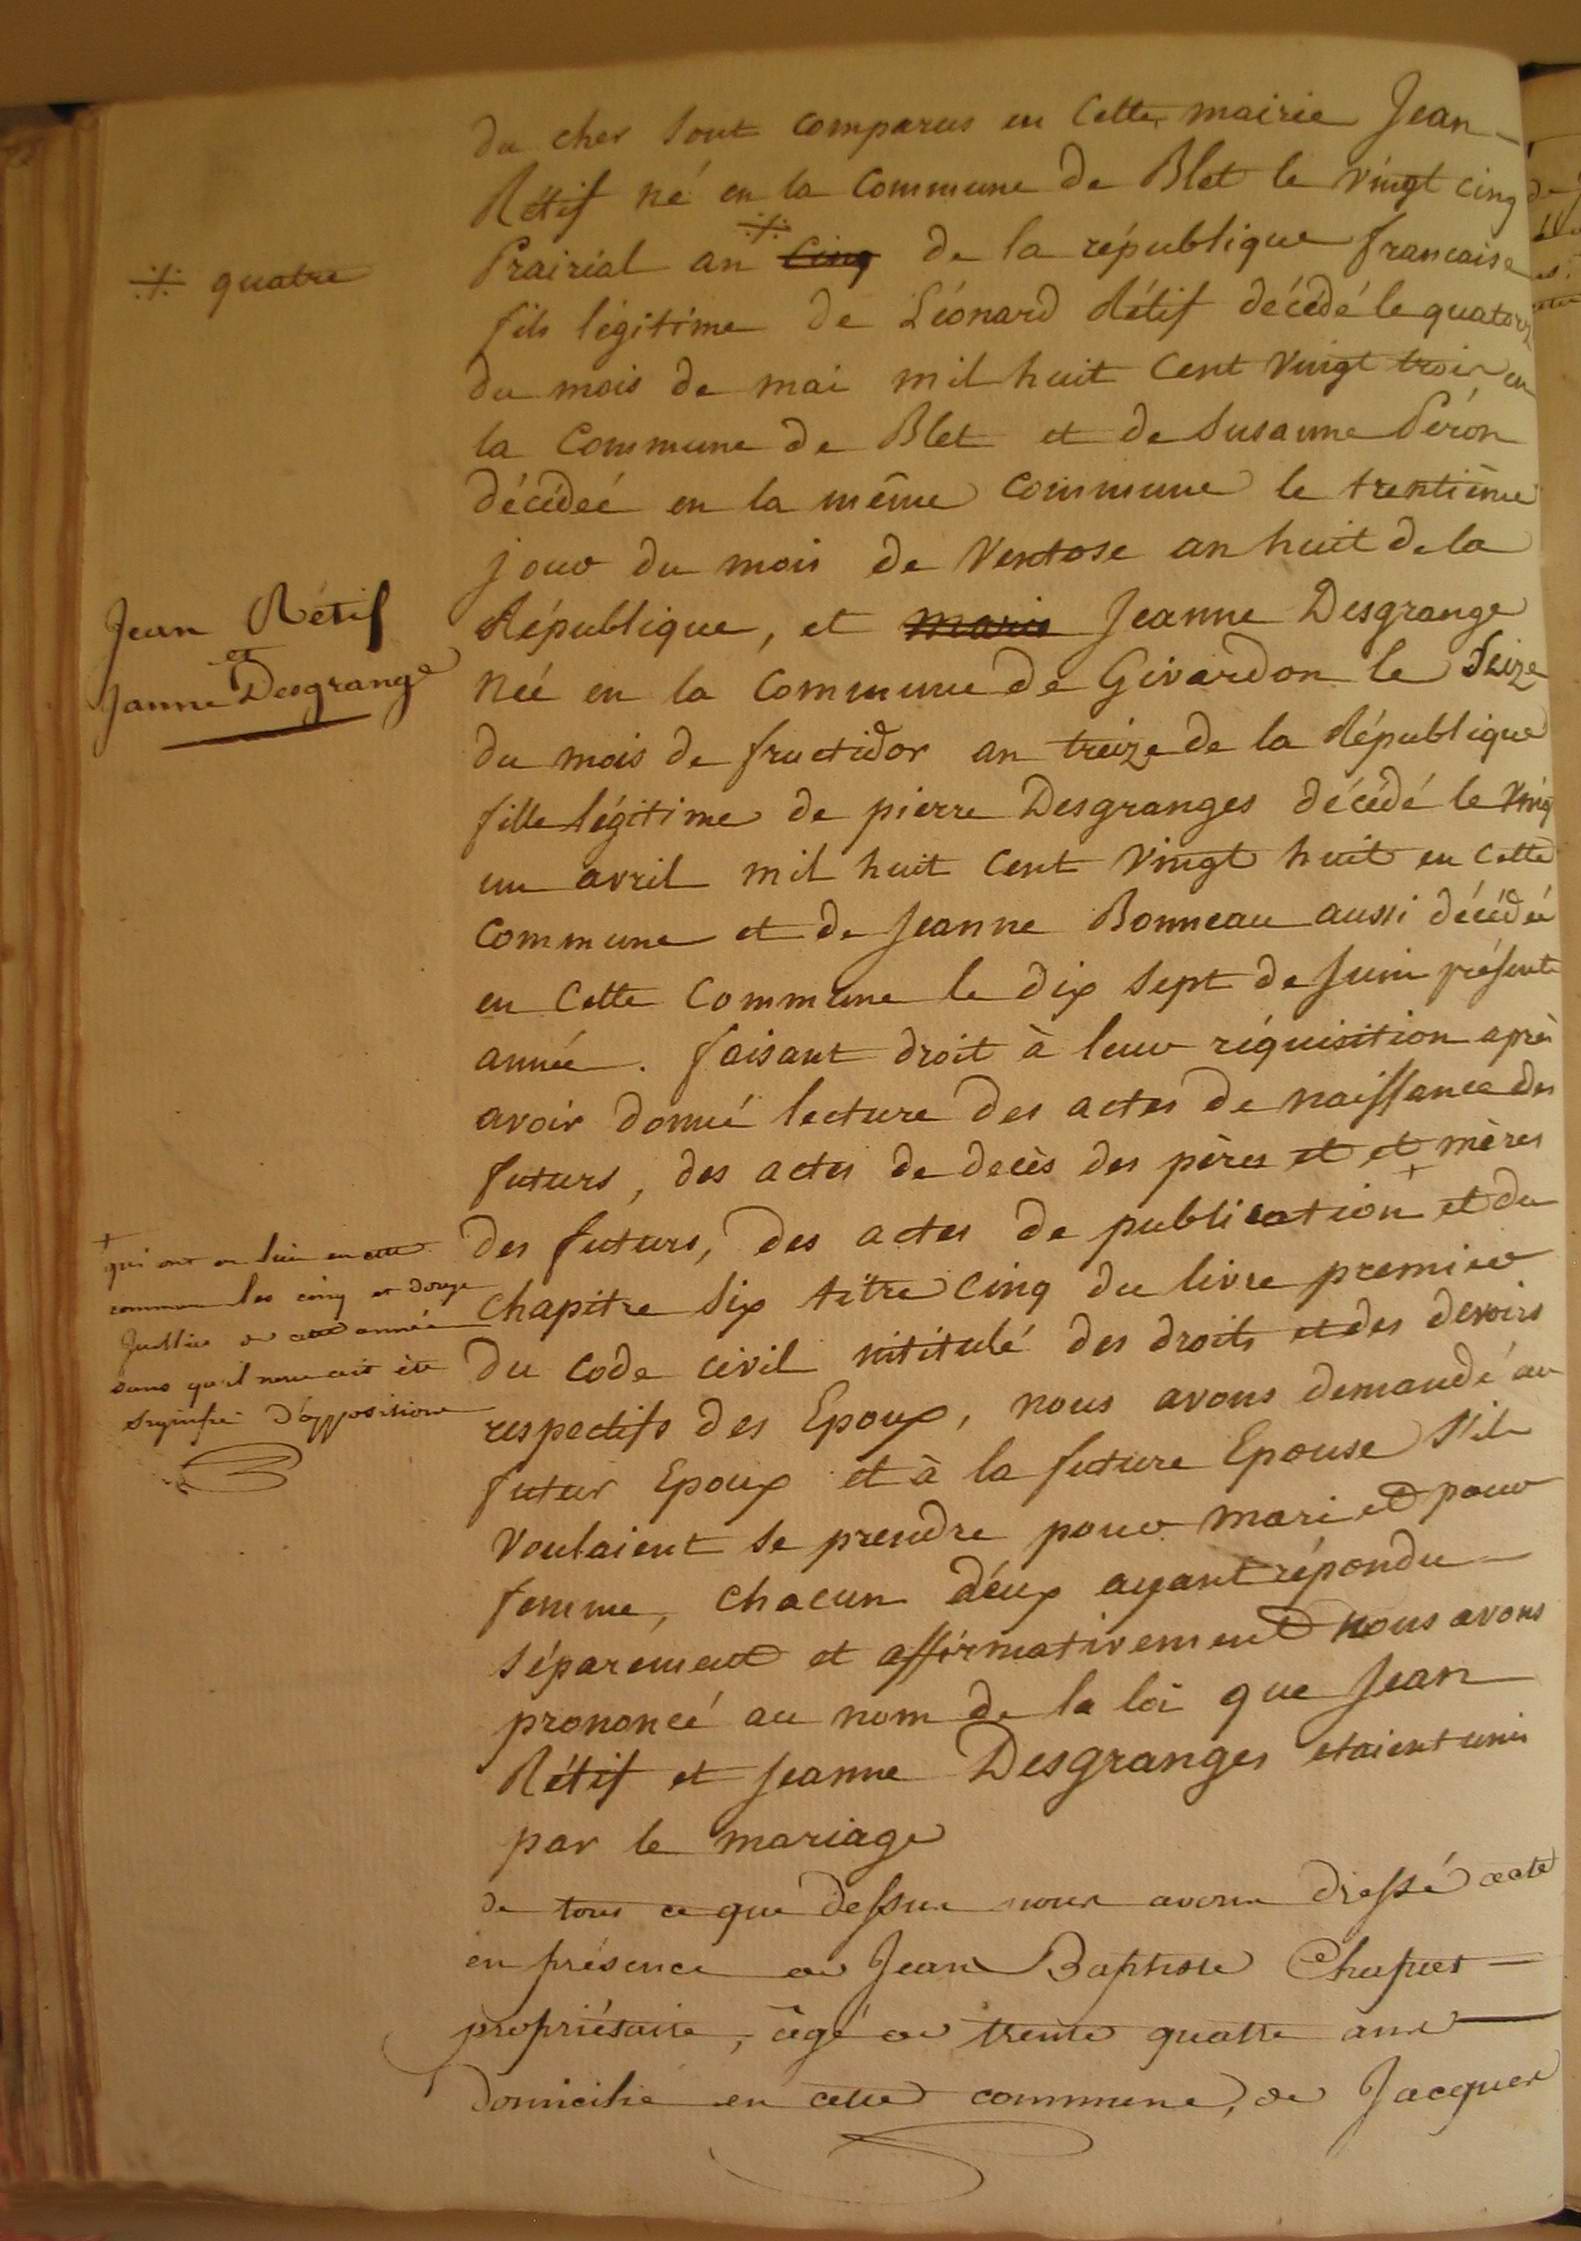 du cher sont comparus en Cette mairie Jean
Rétif né en la Commune de Blet le vingt cinq
Prairial an ·/· Cinq de la république francaise
·/· quatre
fils légitime de Léonard Rétif décédé le quatorz
du mois de mai mil huit Cent Vingt trois en
la Commune de Blet et de Susanne Péron
décédeé en la même Commune le trentième
jour du mois de Ventose an huit de la
République, et Marie Jeanne Desgrange
Jean Rétif
et
Janne Desgrange
Neé en la Commune de Givardon le Seize
du mois de fructidor an treize de la République
fille légitime de pierre Desgranges décédé le Vingt
un avril mil huit Cent Vingt huit en Cette
Commune et de Jeanne Bonneau aussi décédée
en Cette Commune le dix Sept de Juin présente
année. faisant droit à leur réquisition après
avoir donné lecture des actes de naissance des
futurs, des actes de decès des pères et et mères
des futurs, des actes de publication + et du
+
qui ont eu lieu en cette
commune les cinq et douze
Juillet de cette année
sans qu'il nous ait été
signifié d'opposition
Chapitre Six titre Cinq du livre premier
du Code Civil intitulé des droits et des devoirs
respectifs des Epoux, nous avons demandé au
futur Epoux et à la future Epouse S'ils
Voulaient se prendre pour mari et pour
femme, Chacun d'eux ayant répondu
Séparément et affirmativement Nous avons
prononcé au nom de la loi que Jean
Rétif et Jeanne Desgranges etaient unis
par le mariage
de tous ce que dessus nous avons dressé acte
en présence de Jean Baptiste Chapuet
propriétaire, âgé de trente quatre ans
Domicilié en cette commune, de Jacques